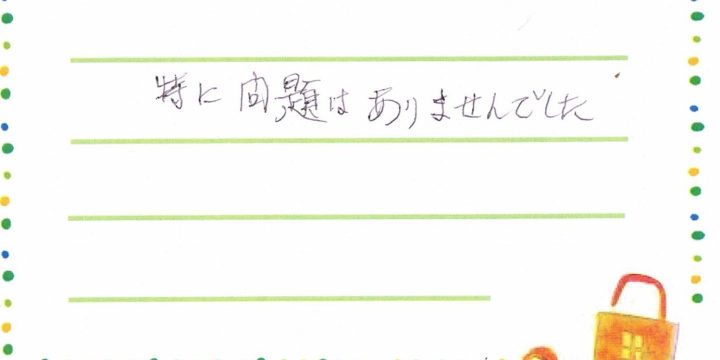 特に問題はありませんでした